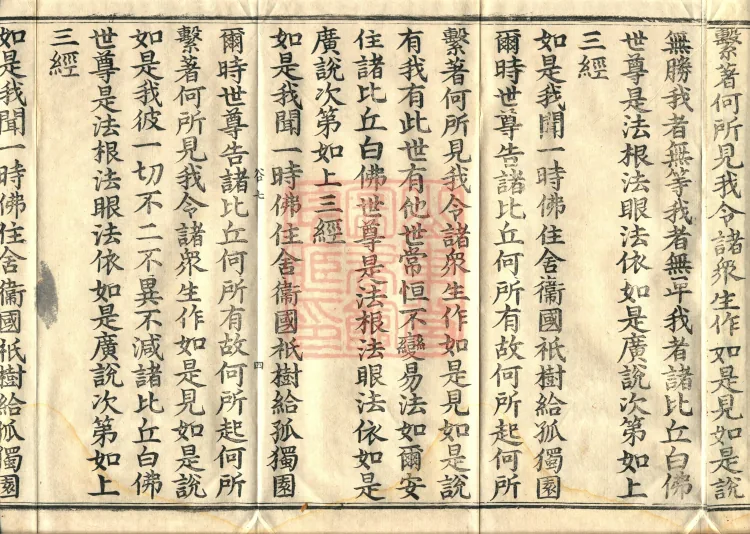 繫著何所見我令諸眾生作如是見如是說
無勝我者無等我者無卑我者諸比丘白佛
世尊是法根法眼法依如是廣說次第如上
三經
如是我聞一時佛住舍衞國祇樹給孤獨園
爾時世尊告諸比丘何所有故何所起何所
繫著何所見我令諸眾生作如是見如是說
有我有此世有他世常恒不變易法如爾安
住諸比丘白佛世尊是法根法眼法依如是
廣說次第如上三經
谷七 四
如是我聞一時佛住舍衞國祇樹給孤獨園
爾時世尊告諸比丘何所有故何所起何所
繫著何所見我令諸眾生作如是見如是說
如是我彼一切不二不異不減諸比丘白佛
世尊是法根法眼法依如是廣說次第如上
三經
如是我聞一時佛住舍衞國祇樹給孤獨園